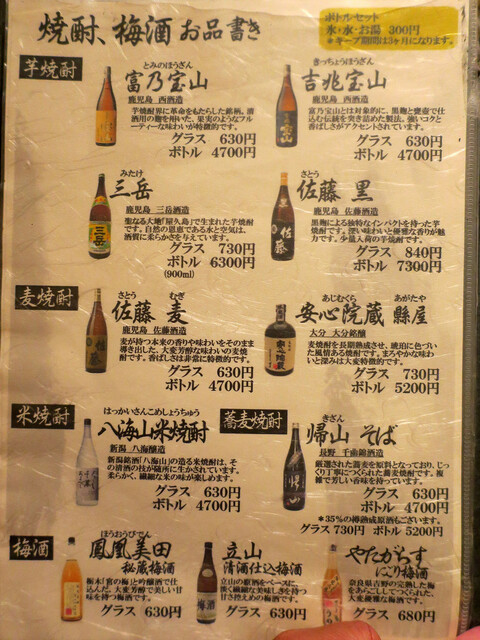 焼酎、梅酒 お品書き
ボトル・セット
氷・水・お湯 300円
*キープ期間は3ヶ月になります。
芋焼酎
とみのほうざん
富乃宝山
鹿児島 西酒造
芋焼酎界に革命をもたらした銘柄。清
酒用の麹を用いた、果実のようなフル
ーティーな味わいが特徴的です。
グラス 630円
ボトル 4700円
きっちょうほうざん
吉兆宝山
鹿児島 西酒造
富乃宝山とは対象的に、黒麹と甕壺で仕
込む伝統を突き詰めた製法。強いコクと
香ばしさがアクセントされています。
グラス 630円
ボトル 4700円
みたけ
三岳
鹿児島 三岳酒造
聖なる大地「屋久島」で生まれた芋焼
酎です。自然の恩恵である水と空気は、
酒質に柔らかさを与えています。
グラス 730円
ボトル 6300円
(900ml)
さとう
佐藤 黒
鹿児島 佐藤酒造
黒麹による独特なインパクトを持った芋
焼酎です。深い味わいと優雅な香りが魅
力です。少量入荷の芋焼酎です。
グラス 840円
ボトル 7300円
麦焼酎
さとう むぎ
佐藤 麦
鹿児島 佐藤酒造
麦が持つ本来の香りや味わいをそのまま
導き出した、大変芳醇な味わいの麦焼
酎です。香ばしさは非常に特徴的です。
グラス 630円
ボトル 4700円
あじむくら あがたや
安心院蔵 縣屋
大分 大分銘醸
麦焼酎を長期熟成させ、琥珀に色づい
た風情ある焼酎です。まろやかな味わ
いと深みは大変特徴的です。
グラス 730円
ボトル 5200円
米焼酎
はっかいさんこめしょうちゅう
八海山米焼酎
新潟 八海醸造
新潟銘酒「八海山」の造る米焼酎は、そ
の清酒の技が随所に生かされています。
柔らかく、繊細な米の味が楽しめます。
グラス 630円
ボトル 4700円
蕎麦焼酎
きざん
帰山 そば
長野 千曲錦酒造
厳選された蕎麦を原料となっており、じっ
くり丁寧につくられた蕎麦焼酎です。複
雑で芳しい香味を持っています。
グラス 630円
ボトル 4700円
*35%の樽熟成原酒もございます。
グラス 730円 ボトル 5200円
梅酒
ほうおうびでん
鳳凰美田
秘蔵梅酒
栃木「宮の梅」と吟醸酒で仕
込んだ、大変芳醇で美しい甘
味を持つ梅酒です。
グラス 630円
立山
清酒仕込梅酒
立山の原酒をベースに、
深く繊細な美味しさを持つ
甘さ控えめの梅酒です。
グラス 630円
やたがらす
にごり梅酒
奈良県吉野の完熟した梅
をあらごししてつくられた、
大変優雅な梅酒です。
グラス 680円